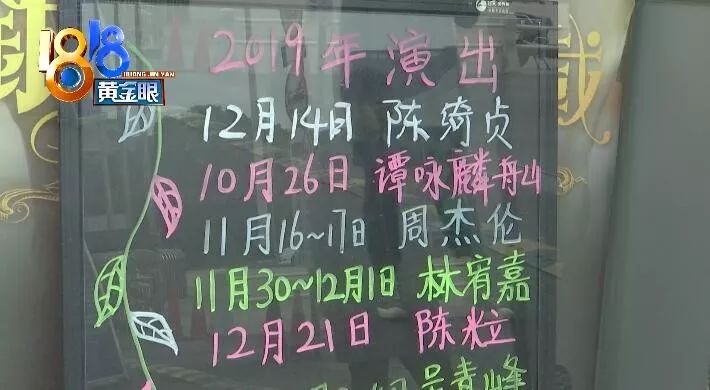 1818
HUANG JIN YAN
黄金眼
2019年演出
12月14日 陈绮贞
10月26日 谭咏麟舟山
11月16~17日 周杰伦
11月30~12月1日 林宥嘉
12月21日 陈粒
吴青峰